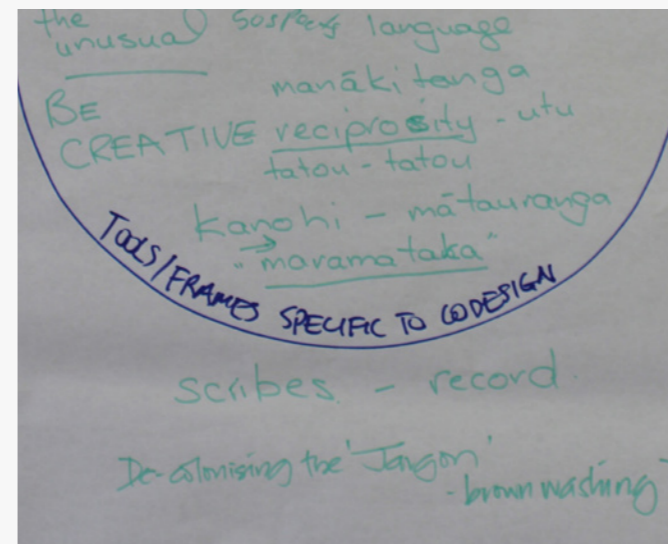 the
unusual suspects language
manākitanga
BE
CREATIVE reciprosity - utu
tatou - tatou
kanohi - mātauranga
→ "maramataka"
TOOLS/FRAMES SPECIFIC TO CODESIGN
scribes - record
De-colonising the 'Jargon'
- brown washing